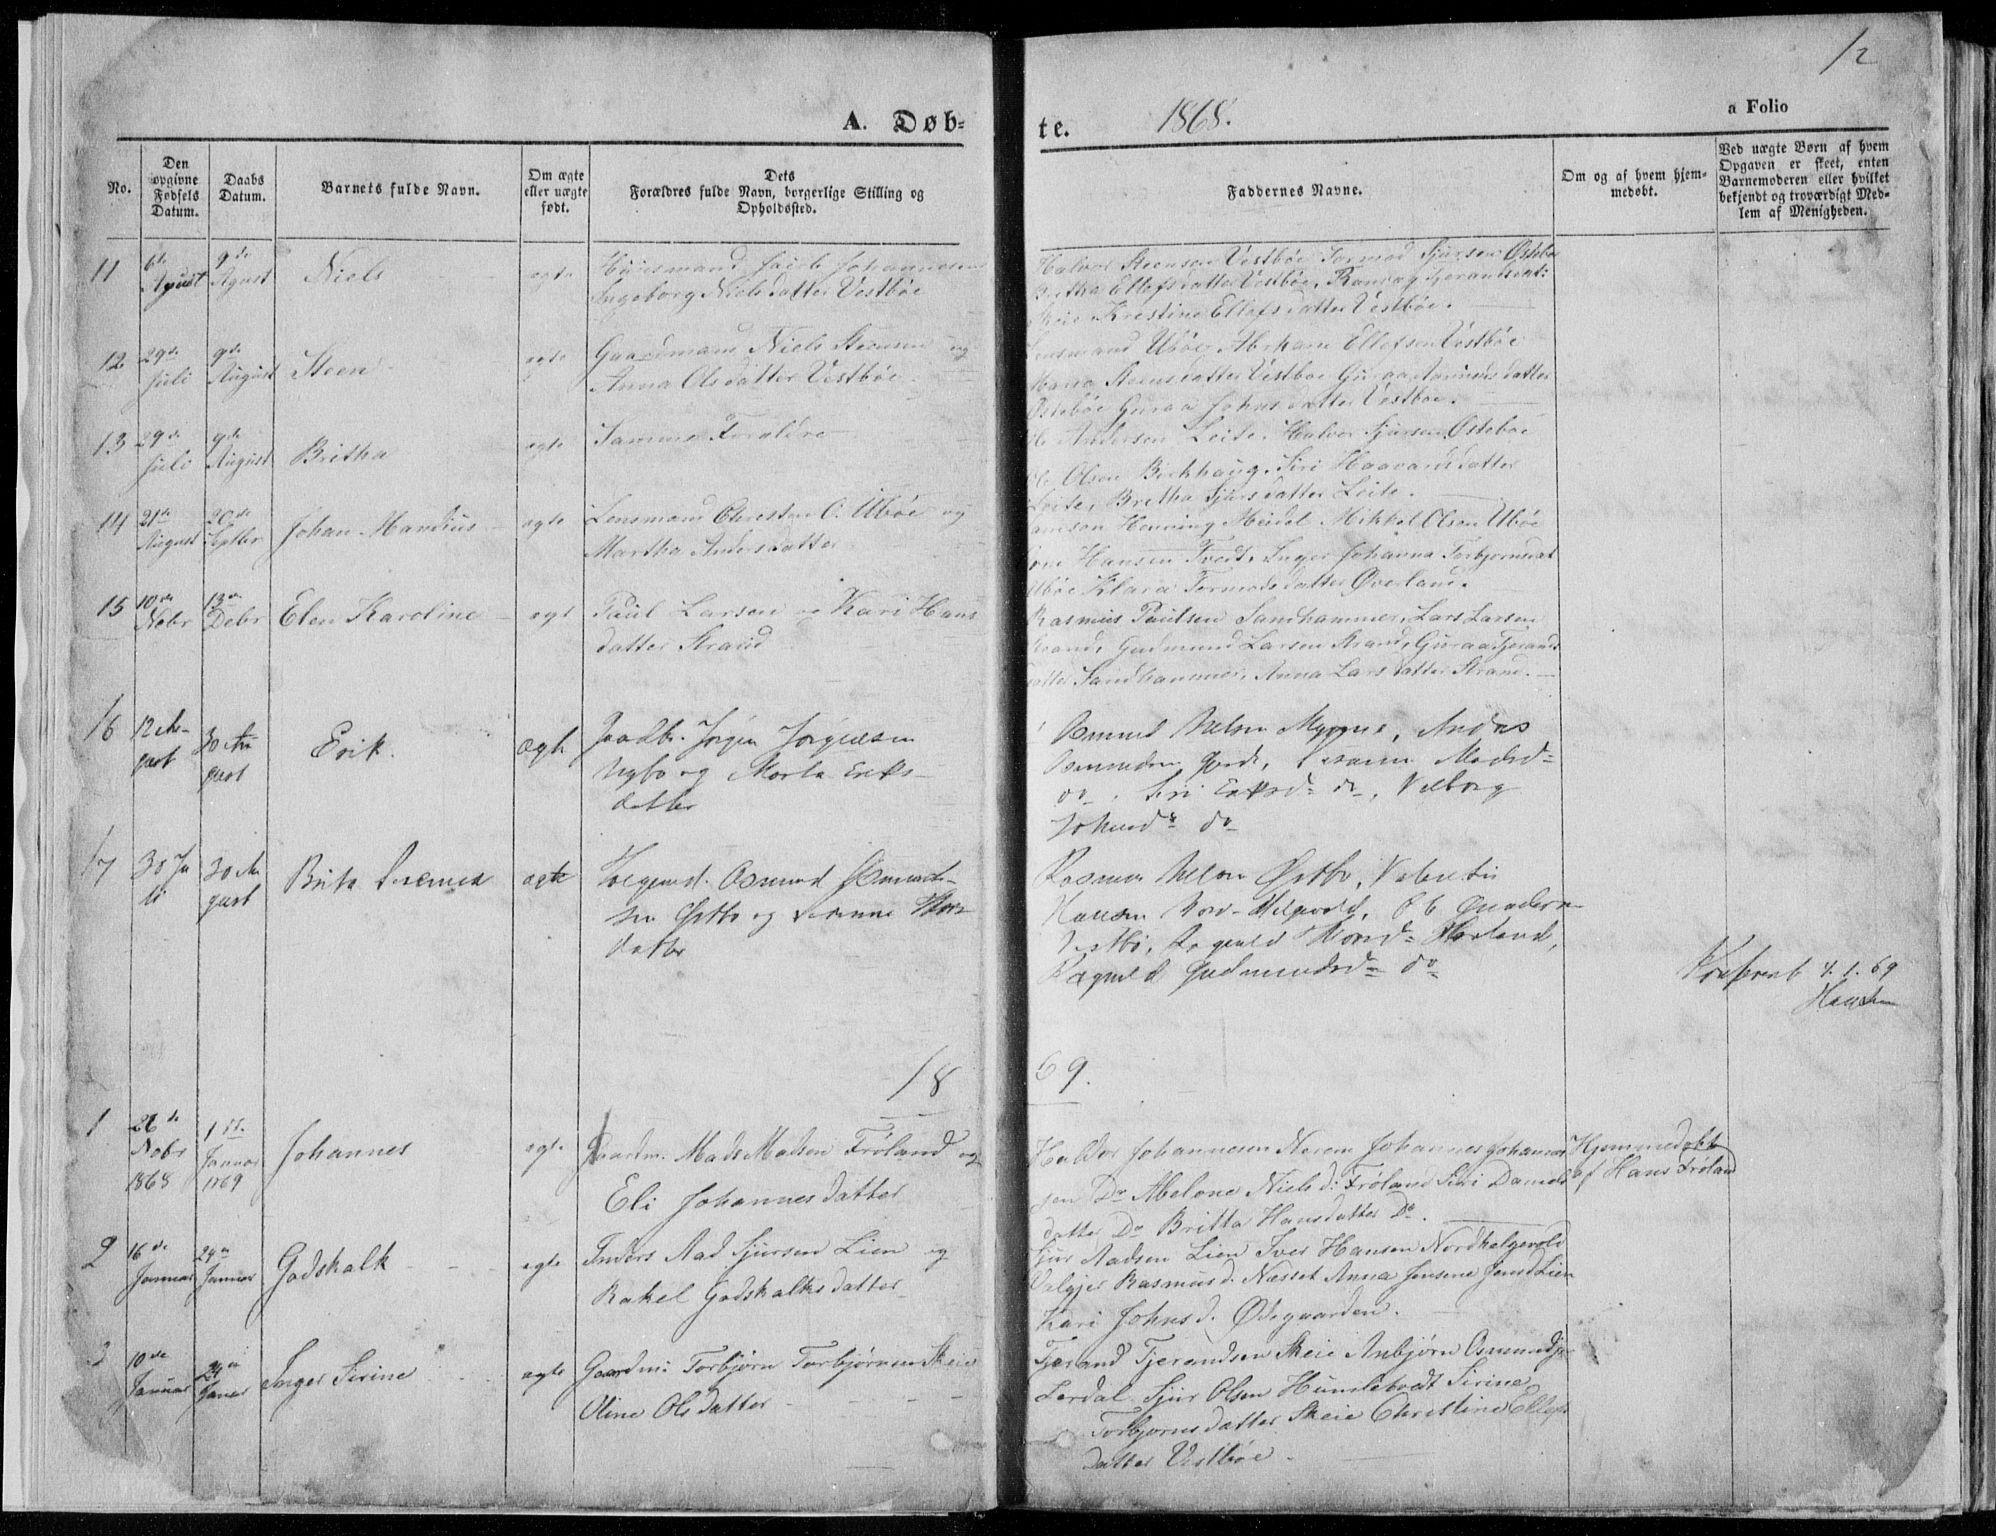 12
A. Døb-
te.
1868.
a Folio
No.
Den opgivne Fødsels Datum.
Daabs Datum.
Barnets fulde Navn.
Om ægte eller uægte født.
Dets Forældres fulde Navn, borgerlige Stilling og Opholdssted.
Faddernes Navne.
Om og af hvem hjemmedøbt.
Ved uægte Børn af hvem Opgaven er skeet, enten Barnemoderen eller hvilket bekjendt og troværdigt Medlem af Menigheden.
11
6te August
9de Agust
Niels
egte
Huusmand Jacob Johannesen
Ingeborg Nielsdatter Vestbøe
Halvor Steensen Vestbøe Tormod Sjursen Østebø
Britha Ellefsdatter Vestbøe, Ranvag Tjerandsdat:
Skeie Kristine Ellefsdatter Vestbøe.
12
29de Juli
9de August
Steen
egte
Gaardmand Niels Steensen og
Anna Olsdatter Vestbøe
Lensmand Ubøe, Abraham Ellefsen Vestbøe
Maria Steensdatter Vestboe Guraa
Østebøe Guraa Johnsdatter Vestboe.
13
29de Juli
9de August
Britha
egte
Samme Foreldre
Andersen Leite, Halvor Sjursen Østeboe
Ole Olsen Berkhaug, Siri Haavarsdatter
Leite, Britha Sjursdatter Leite.
14
21de August
20de Septbr
Johan Mandius
egte
Lensmand Christen O. Ubøe og
Martha Andersdatter
Henning Meidel Mikkel Olsen Ubøe
Hansen Tvedt, Inger Johanna Torbjornsdat
Ubøe Klara Tormodsdatter Øverland.
15
10de Nobr
13de Debr
Elen Karoline
egt
Paul Larsen og Kari Hans
datter Strand
Rasmus Paulsen Sandhammer, Lars Larsen
Strand, Gudmund Larsen Strand, Guraa Tjerands
datter Sandhammer, Anna Larsdatter Strand.
16
12 August
30 August
Erik.
Ægte
Gaadbr. Jørgen Jørgensen
Nybø og Marta Eriks-
datter
Osmund Nelsen Myrene, Anders
Osmundsen Gjerde, Madsd=
do. Siri Eriksd= do, Velborg
Johnsd= do
17
30 Juli
30 August
Brita Serena
ægte
Osmund Osmund-
sen Østbø og Serinne Thors
datter
Rasmus Nelson Østbø, Valentin
Hansen Nord-Helgevold,
Vestbø, Ragnild Thorsd= Hørland,
Ragnild Gudmundsd= do
Konfereret 4.1.69
1869.
1
26de Nobr 1868
1ste Januar 1869
Johannes
egte
Gaardm. Mads Madsen Frøland og
Eli Johannesdatter
Haldor Johannesen Nerem Johannes Johannes
sen Do Abelone Nielsd: Frøland Siri Daniels
datter Do Britta Hansdatter Do.
Hjemmedøbt
af Hans Frøland
2
16de Januar
24de Januar
Godskalk
egte
Anders Aad Sjursen Lien og
Rakel Godskalksdatter
Sjur Aadsen Lien Iver Hansen Nordhelgevold
Valgjer Rasmusd. Næsset Anna Jensine Jensd Lien
Kari Johnsd. Ødegaarden.
3
10de Januar
24de Januar
Inger Sirine
egte
Gaardm: Torbjørn Torbjørnsen Skeie
Oline Olsdatter
Tjerand Tjerandsen Skeie Anbjørn Osmundsen
Lerdal Sjur Olsen Humlebredt Sirine
Torbjornsdatter Skeie Christine Ellefs
datter Vestbøe.